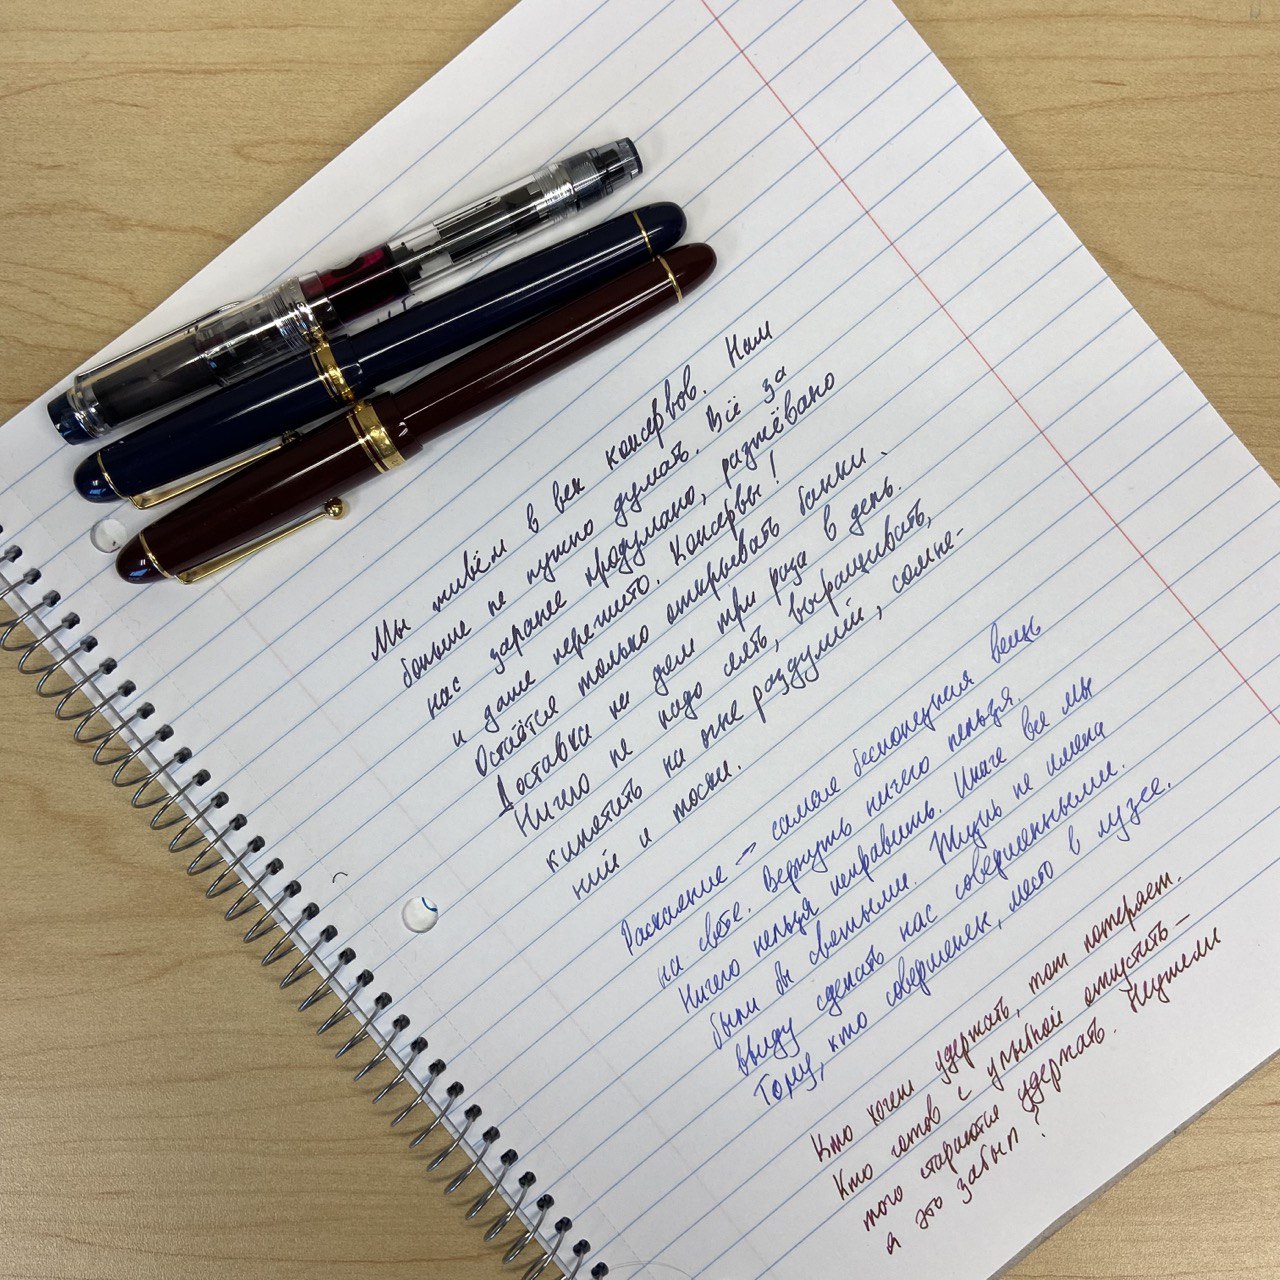 Мы живём в век консервов. Нам
больше не нужно думать. Всё за
нас заранее продумано, разжёвано
и даже пережито. Консервы!
Остаётся только открывать банки.
Доставка на дом три раза в день.
Ничего не надо сеять, выращивать,
кипятить на огне раздумий, сомне-
ний и тоски.
Раскаяние – самая бесполезная вещь
на свете. Вернуть ничего нельзя.
Ничего нельзя исправить. Иначе все мы
были бы святыми. Жизнь не имела
ввиду сделать нас совершенными.
Тому, кто совершенен, место в музее.
Кто хочет удержать, тот потеряет.
Кто готов с улыбкой отпустить –
того стараются удержать. Неужели
я это забыл?